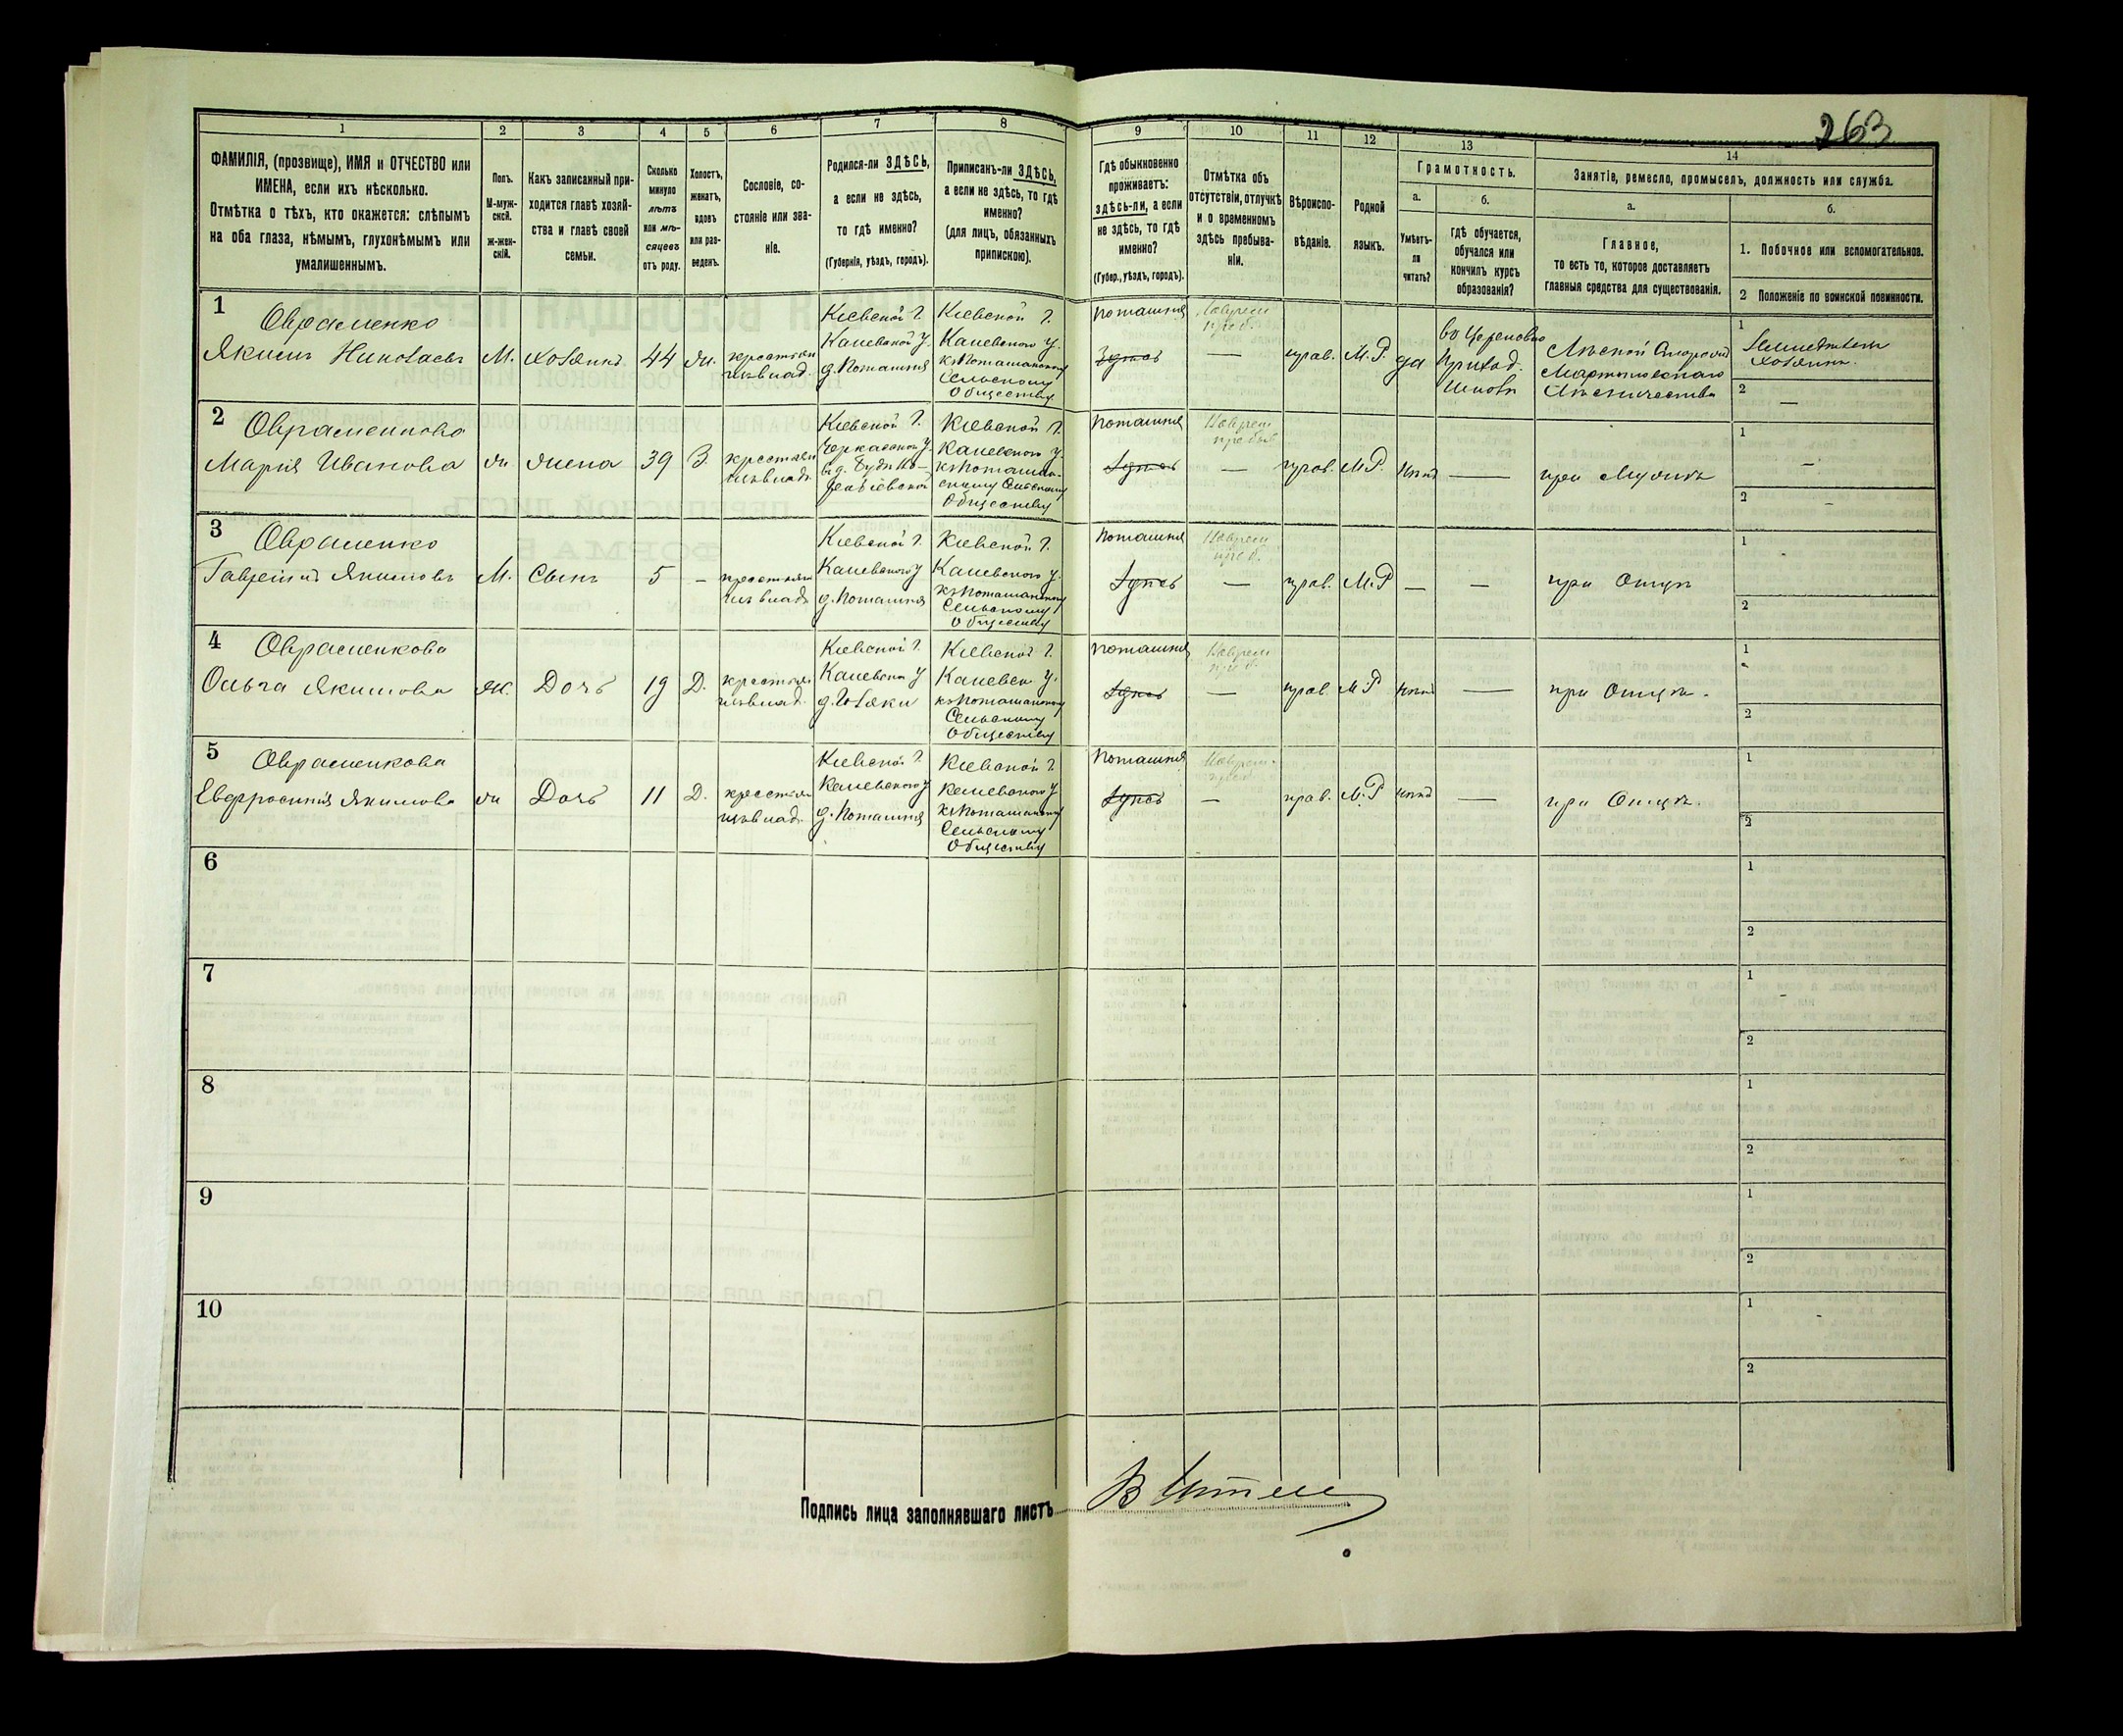 263
1 2 3 4 5 6 7 8 9 10 11 12 13 14
ФАМИЛІЯ, (прозвище), ИМЯ и ОТЧЕСТВО или
ИМЕНА, если ихъ нѣсколько.
Отмѣтка о тѣхъ, кто окажется: слѣпымъ
на оба глаза, нѣмымъ, глухонѣмымъ или
умалишеннымъ.
Полъ.
М-муж-
ской.
ж-жен-
скій.
Какъ записанный при-
ходится главѣ хозяй-
ства и главѣ своей
семьи.
Сколько
минуло
лѣтъ
или мѣ-
сяцевъ
отъ роду.
Холостъ,
женатъ,
вдовъ
или раз-
веденъ.
Сословіе, со-
стояніе или зва-
ніе.
Родился-ли ЗДѢСЬ,
а если не здѣсь,
то гдѣ именно?
(Губернія, уѣздъ, городъ).
Приписанъ-ли ЗДѢСЬ,
а если не здѣсь, то гдѣ
именно?
(для лицъ, обязанныхъ
припискою).
Гдѣ обыкновенно
проживаетъ:
здѣсь-ли, а если
не здѣсь, то гдѣ
именно?
(Губер., уѣздъ, городъ).
Отмѣтка объ
отсутствіи, отлучкѣ
и о временномъ
здѣсь пребыва-
ніи.
Вѣроиспо-
вѣданіе.
Родной
языкъ.
Грамотность.
а.
Умѣетъ-
ли
читать?
б.
гдѣ обучается,
обучался или
кончилъ курсъ
образованія?
Занятіе, ремесло, промыселъ, должность или служба.
а.
Главное,
то есть то, которое доставляетъ
главныя средства для существованія.
б.
1. Побочное или вспомогательное.
2 Положеніе по воинской повинности.
1
Овраменко
Якимъ Николаевъ
М.
хозяинъ
44
ж.
крестьян
изъ влад.
Кіевской г.
Каневской у.
д. Поташня
Кіевской г.
Каневского у.
къ Поташнскому
Сельскому
Обществу
Поташня
Здѣсь
Наврем
преб.
—
прав.
М.Р.
да
во Церковно
Приход.
Школѣ
Лѣсной Сторожъ
Мартыновского
Лѣсничества
1
Земледѣлецъ
хозяинъ.
2
—
2
Овраменкова
Марія Иванова
ж.
жена
39
З.
крестьян
изъ влад.
Кіевской г.
Черкасской у.
Кіевской г.
Каневского у.
къ Поташн-
скому Сельскому
Обществу
Поташня
Здѣсь
Наврем
преб.
—
прав.
М.Р.
нѣтъ
—
при Мужѣ
1
—
2
—
3
Овраменко
Гавріилъ Якимовъ
М.
Сынъ
5
—
крестьян
изъ влад.
Кіевской г.
Каневского у
д. Поташня
Кіевской г.
Каневского у.
къ Поташнскому
Сельскому
Обществу
Поташня
Здѣсь
Наврем
преб.
—
прав.
М.Р
—
—
при Отцѣ
1
2
4
Овраменкова
Ольга Якимова
ж.
Дочь
19
Д.
крестьян
изъ влад.
Кіевской г.
Каневской у
Кіевской г.
Каневск у.
къ Поташнскому
Сельскому
Обществу
Поташня
Здѣсь
Наврем
преб.
—
прав.
М.Р
нѣтъ
—
при Отцѣ.
1
2
5
Овраменкова
Евфросинія Якимова
ж
Дочь
11
Д.
крестьян
изъ влад.
Кіевской г.
Каневского у
д. Поташня
Кіевской г.
Каневского у
къ Поташнскому
Сельскому
Обществу
Поташня
Здѣсь
Наврем.
преб.
—
прав.
М.Р
нѣтъ
—
при Отцѣ.
1
2
6
1
2
7
1
2
8
1
2
9
1
2
10
1
2
Подпись лица заполнявшаго листъ